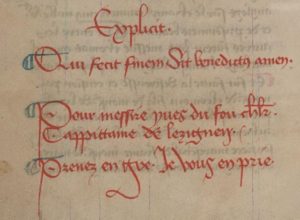 Explicit.
Qui fecit finem sit benedictus amen.
Pour messire yues du fou chlr.
Cappittaine de lezigney.
Prenez en gre. Je vous en prie